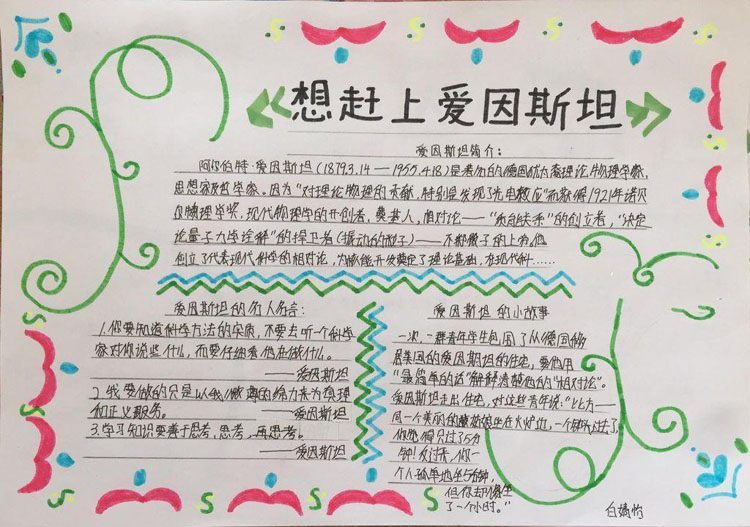 想赶上爱因斯坦
爱因斯坦简介：
阿尔伯特·爱因斯坦（1879.3.14—1955.4.18）是著名的德国犹太裔理论物理学家，
思想家及哲学家。因为“对理论物理的贡献，特别是发现了光电效应”而获得1921年诺贝
尔物理学奖，现代物理学的开创者，奠基人，相对论——“质能关系”的创立者，“决定
论量子力学诠释”的捍卫者（振动的粒子）——不掷骰子的上帝，他
创立了代表现代科学的相对论，为核能开发奠定了理论基础，在现代科……
爱因斯坦的名人名言：
1.你要知道科学方法的实质，不要去听一个科学
家对你说些什么，而要仔细看他在做什么。
——爱因斯坦
2.我要做的只是以我微薄的绵力来为真理
和正义服务。——爱因斯坦
3.学习知识要善于思考，思考，再思考。
——爱因斯坦
爱因斯坦的小故事
一次，一群青年学生包围了从德国移
居美国的爱因斯坦的住宅，要他用
“最简单的话”解释清楚他的“相对论”。
爱因斯坦走出住宅，对这些青年说：“比方——
同一个美丽的姑娘坐在火炉边，一个钟头过去了，
你觉得只过了5分
钟！反过来，你一
个人孤单地坐5分钟，
但你却像坐
了一个小时。”